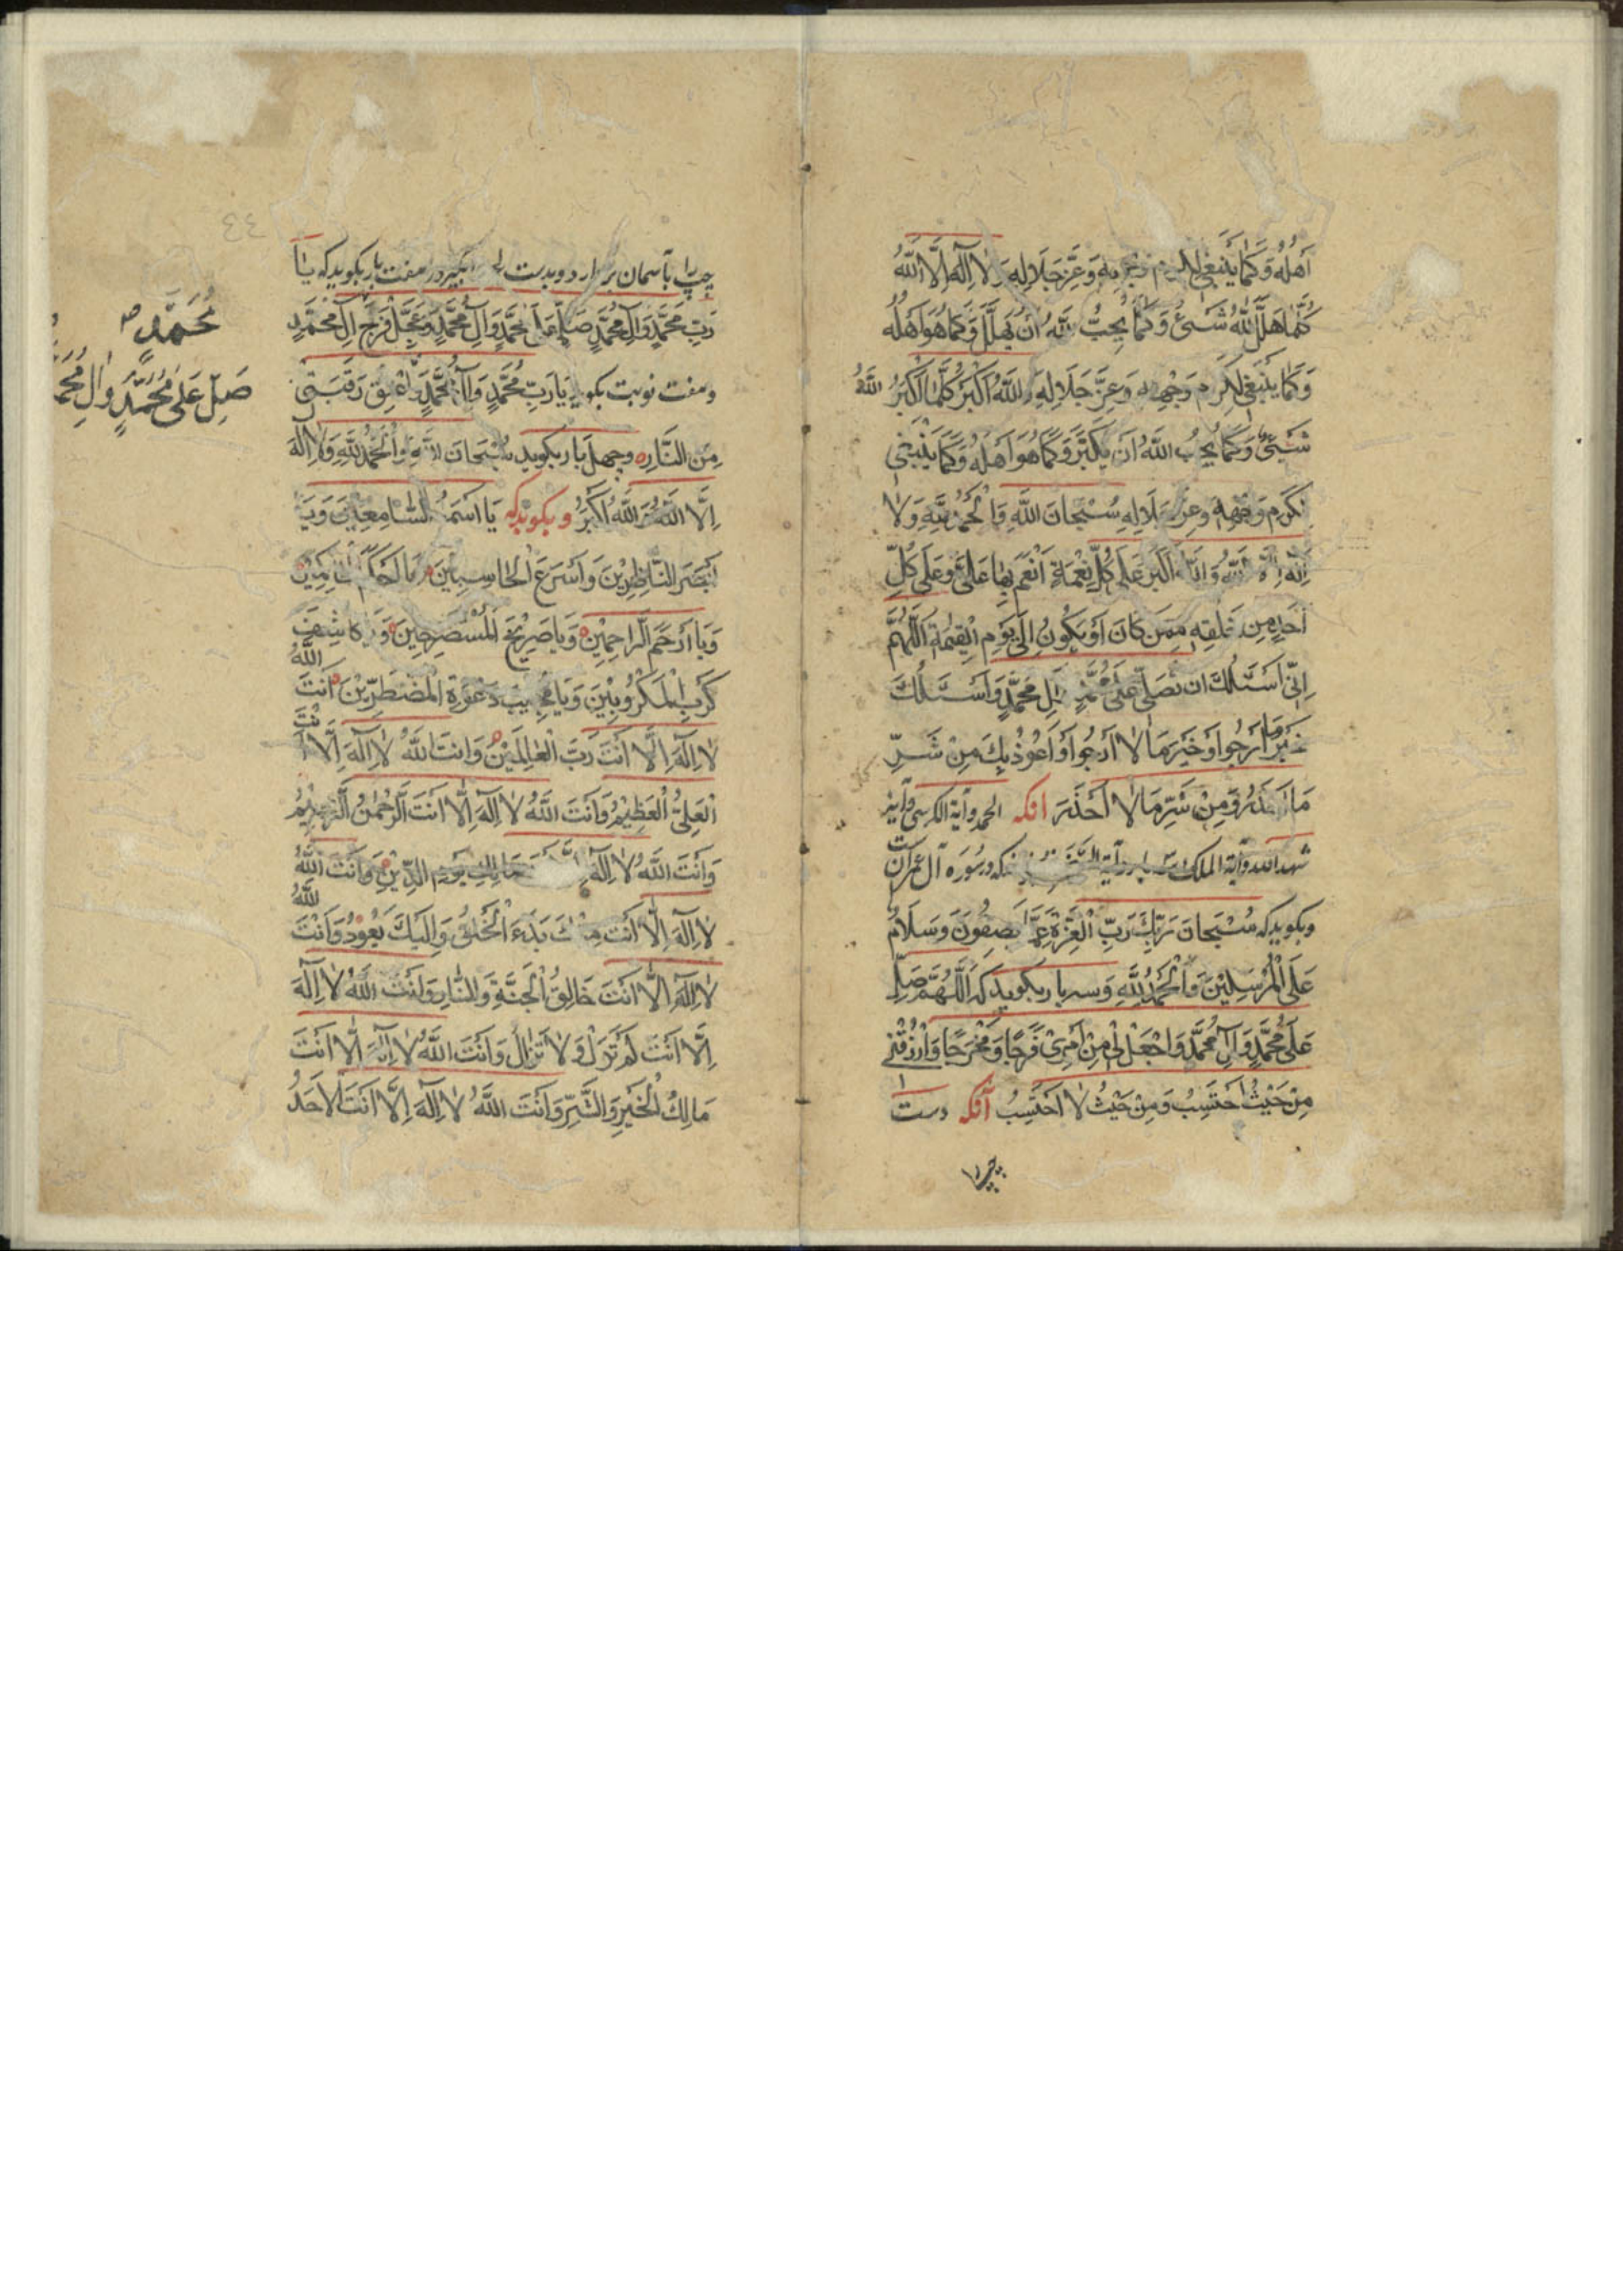 اَهْلُهُ وَكَمَا يَنْبَغِي لِكَرَمِ وَجْهِهِ وَعِزِّ جَلَالِهِ وَلَا اِلٰهَ اِلَّا اللّٰهُ
كُلَّمَا هَلَّلَ اللّٰهَ شَيْءٌ وَكَمَا يُحِبُّ اللّٰهُ اَنْ يُهَلَّلَ وَكَمَا هُوَ اَهْلُهُ
وَكَمَا يَنْبَغِي لِكَرَمِ وَجْهِهِ وَعِزِّ جَلَالِهِ وَاللّٰهُ اَكْبَرُ كُلَّمَا اَكْبَرُ اللّٰهُ
شَيْءٌ وَكَمَا يُحِبُّ اللّٰهُ اَنْ يُكَبَّرَ وَكَمَا هُوَ اَهْلُهُ وَكَمَا يَنْبَغِي
لِكَرَمِ وَجْهِهِ وَعِزِّ جَلَالِهِ سُبْحَانَ اللّٰهِ وَالْحَمْدُ لِلّٰهِ وَلَا
اِلٰهَ اِلَّا اللّٰهُ وَاللّٰهُ اَكْبَرُ عَلَى كُلِّ نِعْمَةٍ اَنْعَمَ بِهَا عَلَيَّ وَعَلَى كُلِّ
اَحَدٍ مِنْ خَلْقِهِ مِمَّنْ كَانَ اَوْ يَكُونُ اِلَى يَوْمِ الْقِيٰمَةِ اَللّٰهُمَّ
اِنِّي اَسْئَلُكَ اَنْ تُصَلِّيَ عَلَى مُحَمَّدٍ وَآلِ مُحَمَّدٍ وَاَسْئَلُكَ
خَيْرَ مَا اَرْجُوا وَخَيْرَ مَا لَا اَرْجُوا وَاَعُوذُ بِكَ مِنْ شَرِّ
مَا اَحْذَرُ وَمِنْ شَرِّ مَا لَا اَحْذَرَ انكه الحمد وآية الكرسي وآية
شهد الله وآية الملك وآية السخره كه در سوره آل عمران
وبكويد كه سُبْحَانَ رَبِّكَ رَبِّ الْعِزَّةِ عَمَّا يَصِفُونَ وَسَلَامٌ
عَلَى الْمُرْسَلِيْنَ وَالْحَمْدُ لِلّٰهِ وسه بار بكويد كه اَللّٰهُمَّ صَلِّ
عَلَى مُحَمَّدٍ وَآلِ مُحَمَّدٍ وَاجْعَلْ لِي مِنْ اَمْرِي فَرَجًا وَمَخْرَجًا وَارْزُقْنِي
مِنْ حَيْثُ اَحْتَسِبُ وَمِنْ حَيْثُ لَا اَحْتَسِبُ آنكه دست
چپ را
٤٤
چپ را بآسمان بردارد وبدست بگیرد وهفت بار بکوید که یا
رَبِّ مُحَمَّدٍ وَآلِ مُحَمَّدٍ صَلِّ عَلَى مُحَمَّدٍ وَآلِ مُحَمَّدٍ وَعَجِّلْ فَرَجَ آلِ مُحَمَّدٍ
وهفت نوبت بكويد يَا رَبِّ مُحَمَّدٍ وَآلِ مُحَمَّدٍ اَعْتِقْ رَقَبَتِي
مِنَ النَّارِ وچهل بار بكويد سُبْحَانَ اللّٰهِ وَالْحَمْدُ لِلّٰهِ وَلَا اِلٰهَ
اِلَّا اللّٰهُ وَاللّٰهُ اَكْبَرُ وبكويد كه يَا اَسْمَعَ السَّامِعِيْنَ وَيَا
اَبْصَرَ النَّاظِرِيْنَ وَاَسْرَعَ الْحَاسِبِيْنَ يَا اَحْكَمَ الْحَاكِمِيْنَ
وَيَا اَرْحَمَ الرَّاحِمِيْنَ وَيَا صَرِيْخَ الْمُسْتَصْرِخِيْنَ وَيَا كَاشِفَ
كَرْبِ الْمَكْرُوبِيْنَ وَيَا مُجِيْبَ دَعْوَةِ الْمُضْطَرِّيْنَ اَنْتَ اللّٰهُ
لَا اِلٰهَ اِلَّا اَنْتَ رَبُّ الْعَالَمِيْنَ وَاَنْتَ اللّٰهُ لَا اِلٰهَ اِلَّا اَنْتَ
الْعَلِيُّ الْعَظِيْمُ وَاَنْتَ اللّٰهُ لَا اِلٰهَ اِلَّا اَنْتَ الرَّحْمٰنُ الرَّحِيْمُ
وَاَنْتَ اللّٰهُ لَا اِلٰهَ اِلَّا اَنْتَ مَالِكِ يَوْمِ الدِّيْنِ وَاَنْتَ اللّٰهُ
لَا اِلٰهَ اِلَّا اَنْتَ مِنْكَ بَدْءَ الْخَلْقِ وَاِلَيْكَ يَعُوْدُ وَاَنْتَ اللّٰهُ
لَا اِلٰهَ اِلَّا اَنْتَ خَالِقُ الْجَنَّةِ وَالنَّارِ وَاَنْتَ اللّٰهُ لَا اِلٰهَ
اِلَّا اَنْتَ لَمْ تَزَلْ وَلَا تَزَالُ وَاَنْتَ اللّٰهُ لَا اِلٰهَ اِلَّا اَنْتَ
مَالِكُ الْخَيْرِ وَالشَّرِّ وَاَنْتَ اللّٰهُ لَا اِلٰهَ اِلَّا اَنْتَ الْاَحَدُ
مُحَمَّدٍ
صَلِّ عَلَى مُحَمَّدٍ وَالِ مُحَمَّ